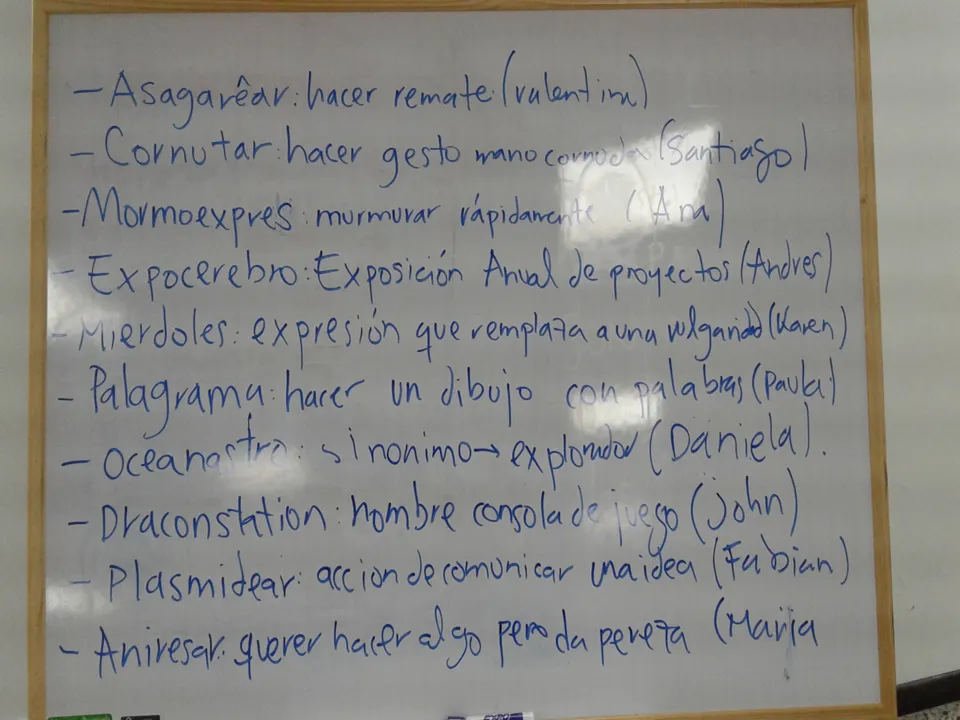 - Asagarêar: hacer remate (valentina)
- Cornutar: hacer gesto mano cornuda (Santiago)
- Mormoexpres: murmurar rápidamente (Ana)
- Expocerebro: Exposición Anual de proyectos (Andres)
- Mierdoles: expresión que remplaza a una vulgaridad (Karen)
- Palagrama: hacer un dibujo con palabras (Paula)
- Oceanastro: sinonimo → explorador (Daniela).
- Draconstation: nombre consola de juego (john)
- Plasmidear: accion de comunicar una idea (Fabian)
- Aniresar: querer hacer algo pero da pereza (Maria
EXPO